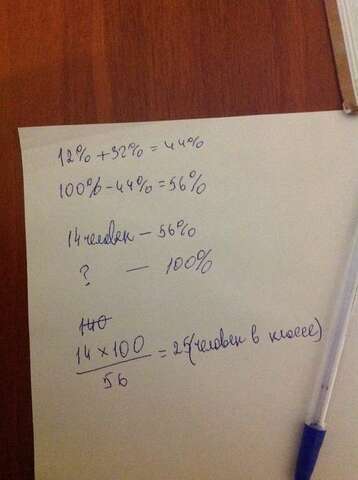 12% + 32% = 44%
100% - 44% = 56%
14 человек - 56%
? - 100%
140
14 × 100
56
= 25 (человек в классе)